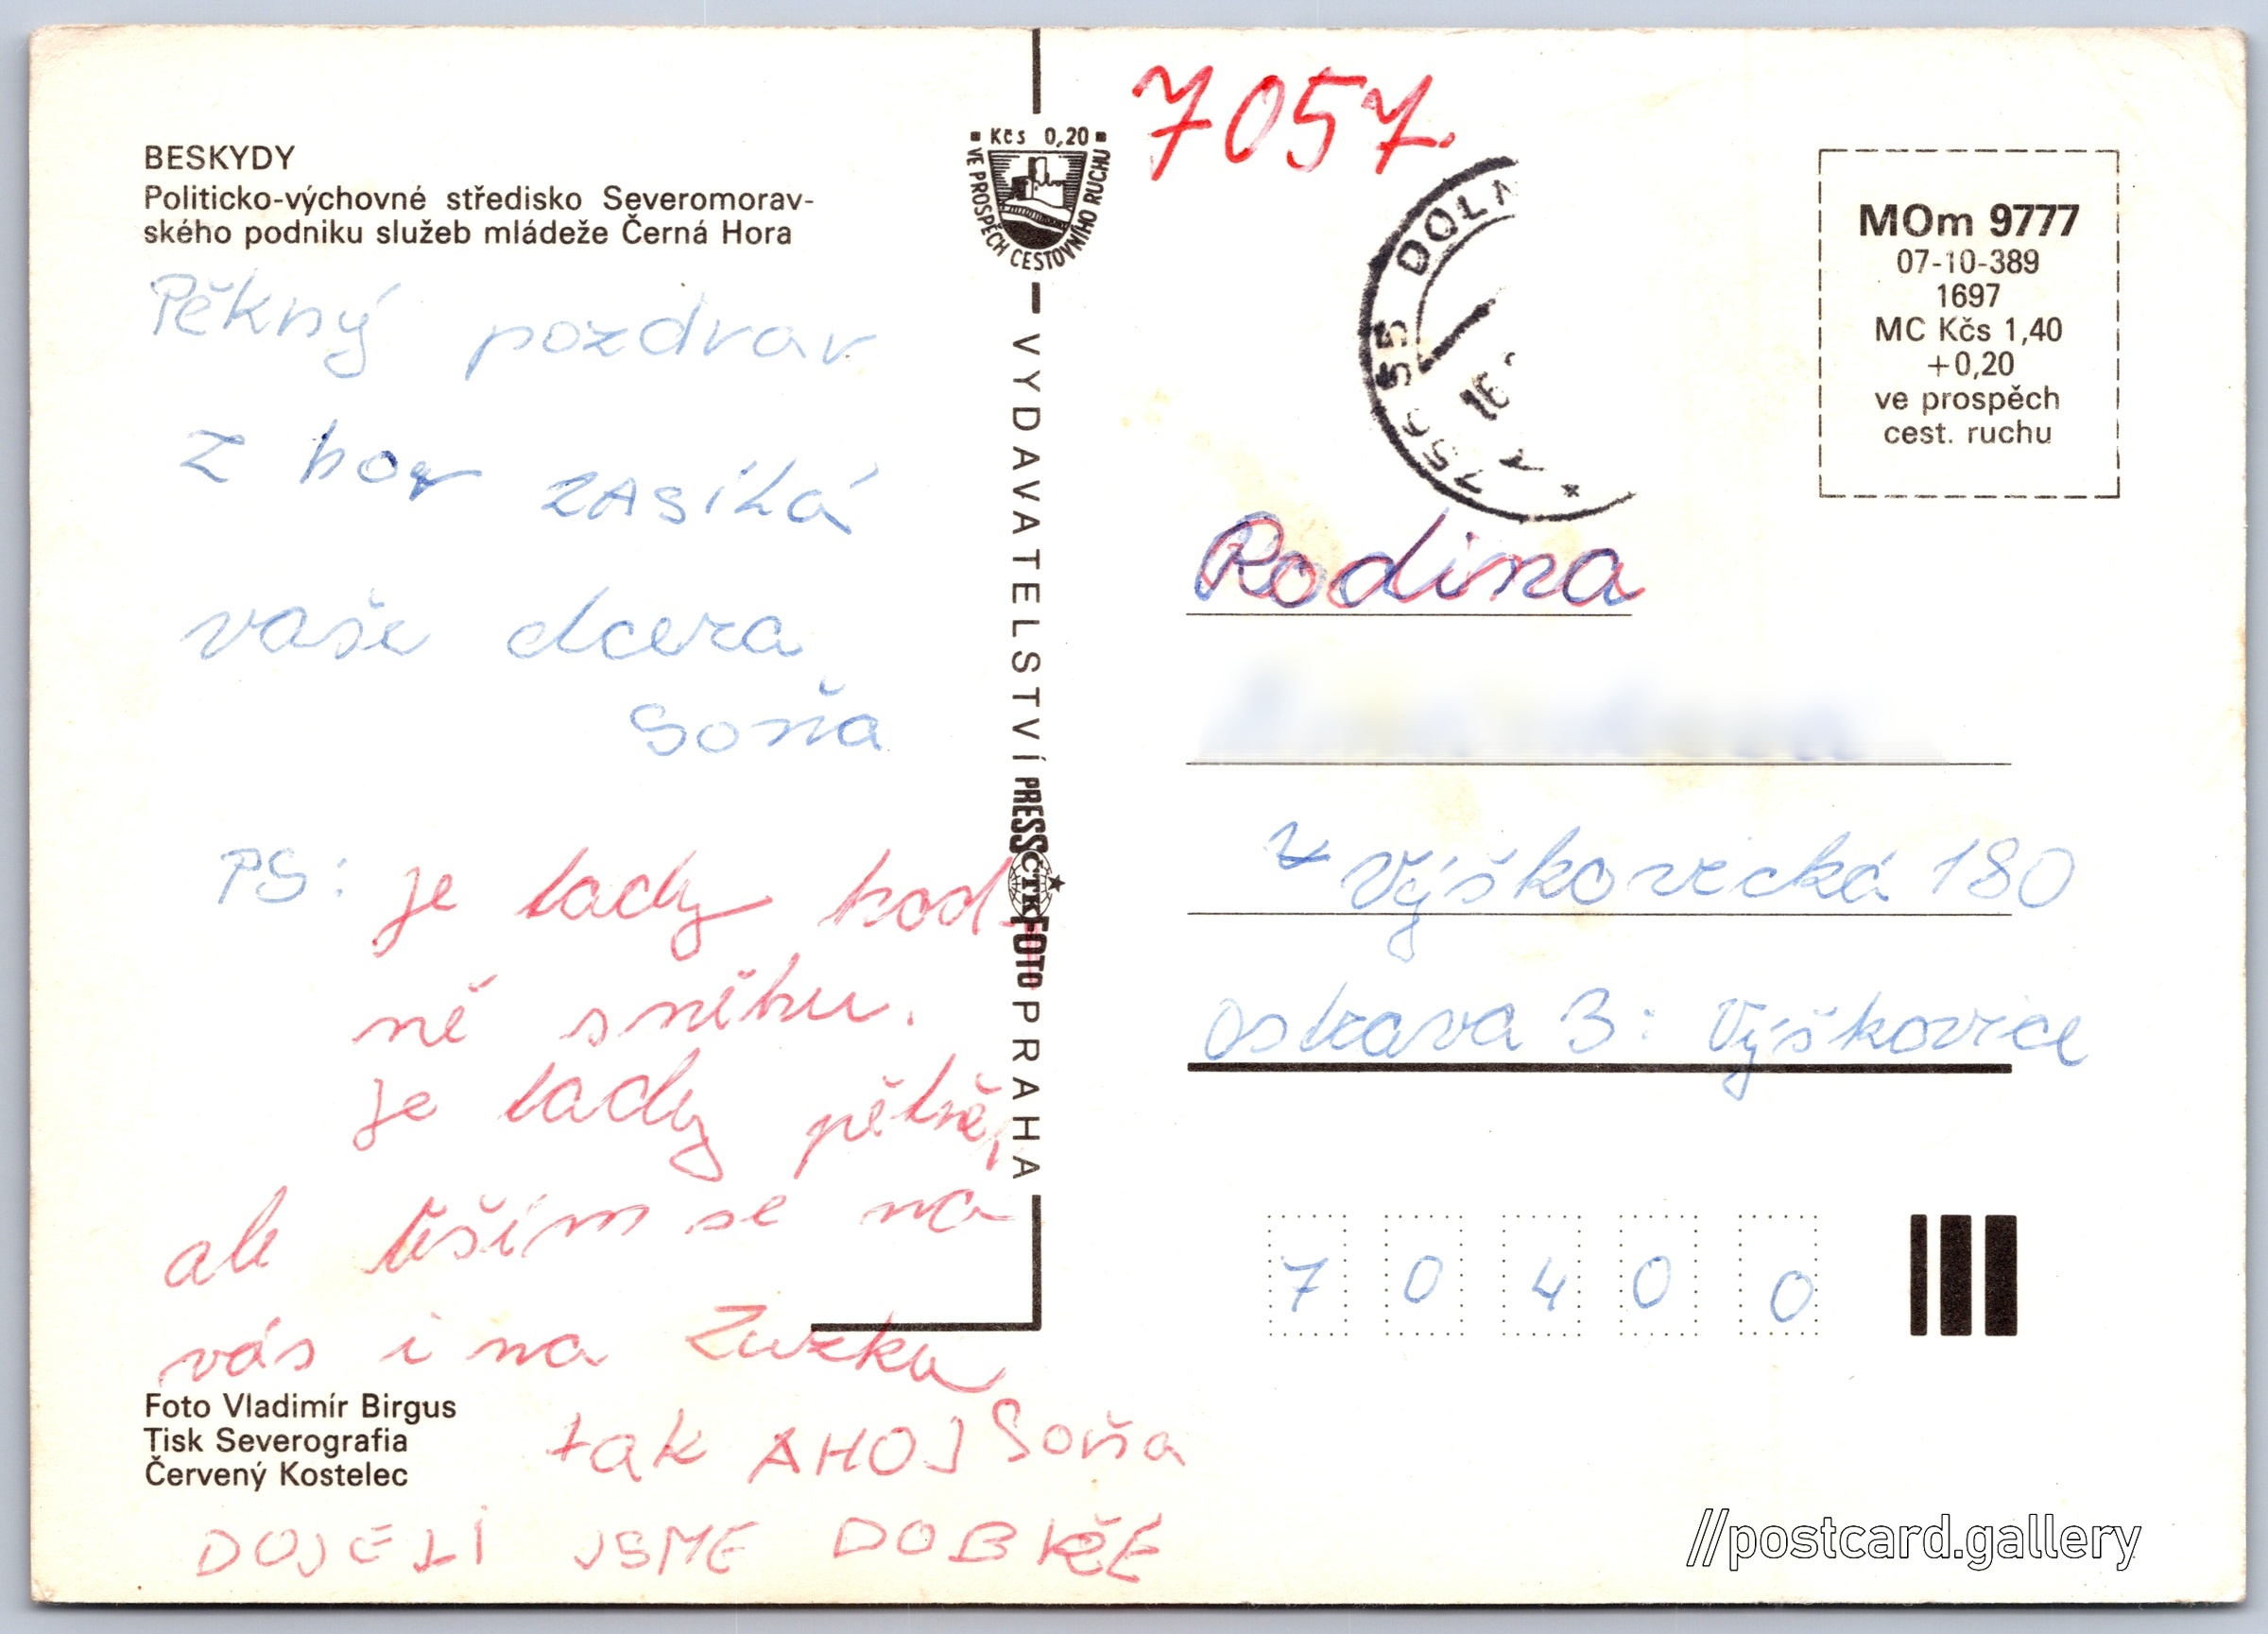 BESKYDY
Politicko-výchovné středisko Severomorav-
ského podniku služeb mládeže Černá Hora
Pěkný pozdrav
z hor ZASÍLÁ
vaše dcera
Soňa
PS: je tady hod-
ně sněhu.
je tady pěkně,
ale těším se na
vás i na Zuzku
tak AHOJ Soňa
DOJELI JSME DOBŘE
Foto Vladimír Birgus
Tisk Severografia
Červený Kostelec
Kčs 0,20
VE PROSPĚCH CESTOVNÍHO RUCHU
VYDAVATELSTVÍ PRESSFOTO PRAHA
ČTK
7057.
756 55 DOLN
16
MOm 9777
07-10-389
1697
MC Kčs 1,40
+0,20
ve prospěch
cest. ruchu
Rodina
Výškovická 180
Ostrava 3: Výškovice
7 0 4 0 0
//postcard.gallery